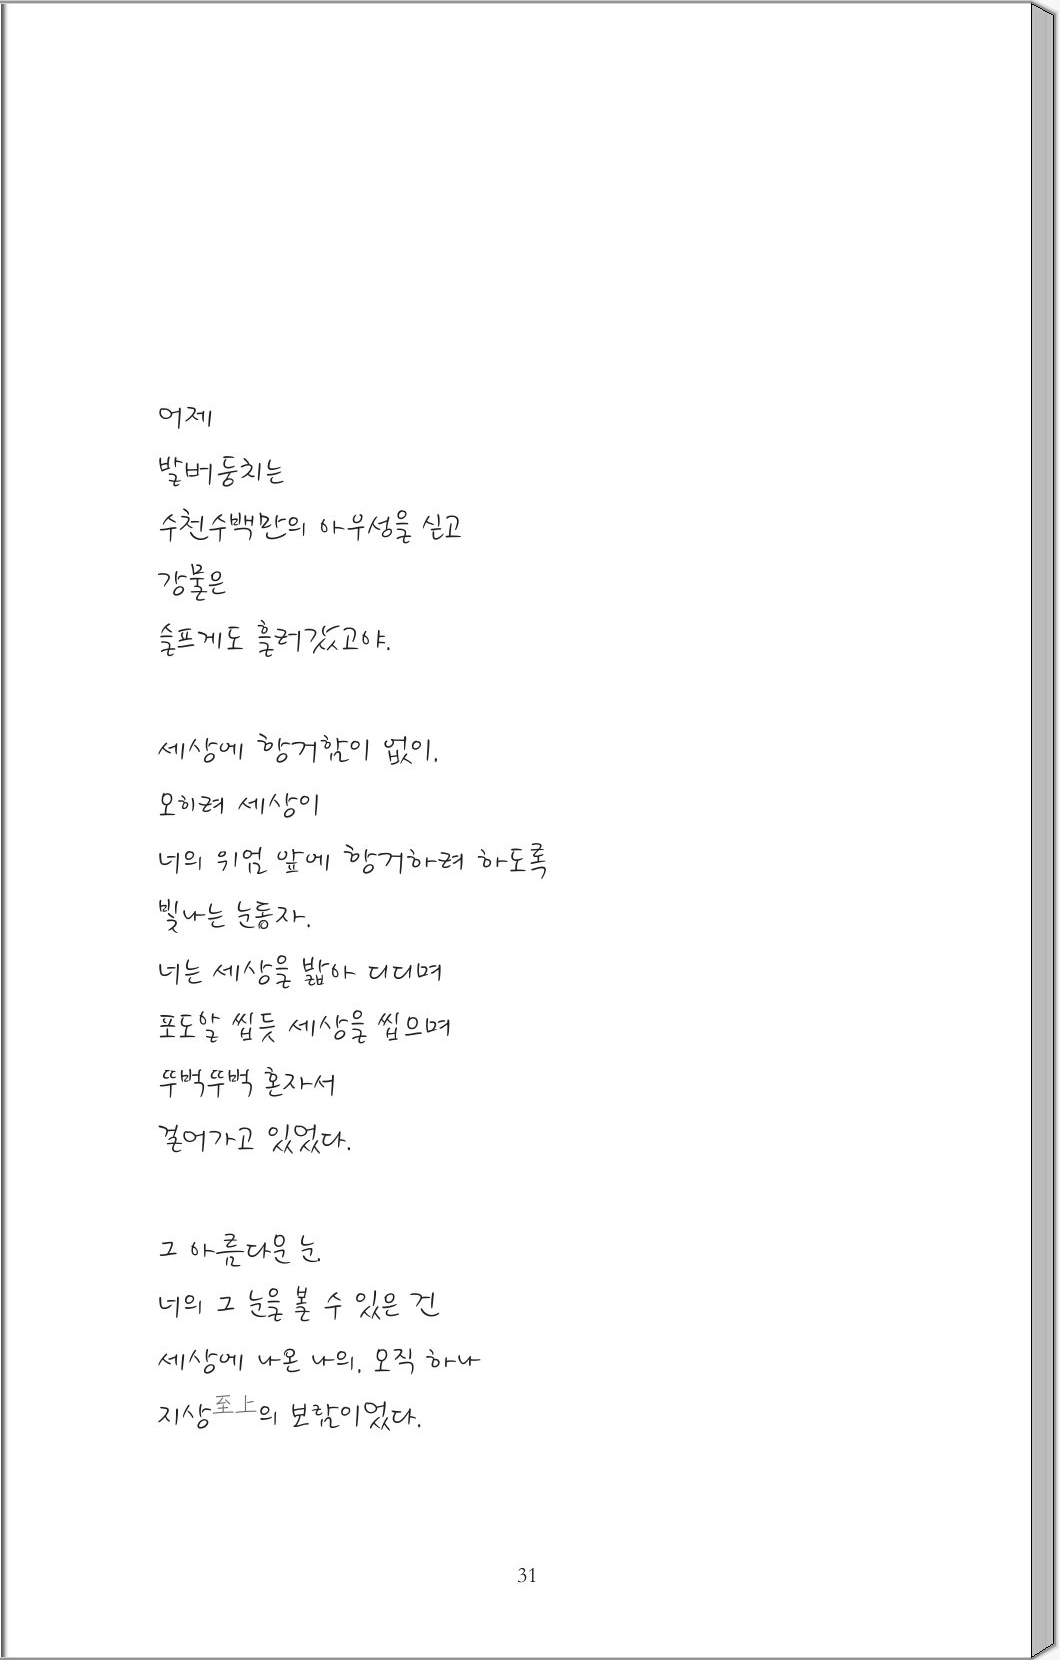 어제
발버둥치는
수천수백만의 아우성을 싣고
강물은
슬프게도 흘러갔고야.
세상에 항거함이 없이,
오히려 세상이
너의 위엄 앞에 항거하려 하도록
빛나는 눈동자.
너는 세상을 밟아 디디며
포도알 씹듯 세상을 씹으며
뚜벅뚜벅 혼자서
걸어가고 있었다.
그 아름다운 눈.
너의 그 눈을 볼 수 있은 건
세상에 나온 나의, 오직 하나
지상至上의 보람이었다.
31